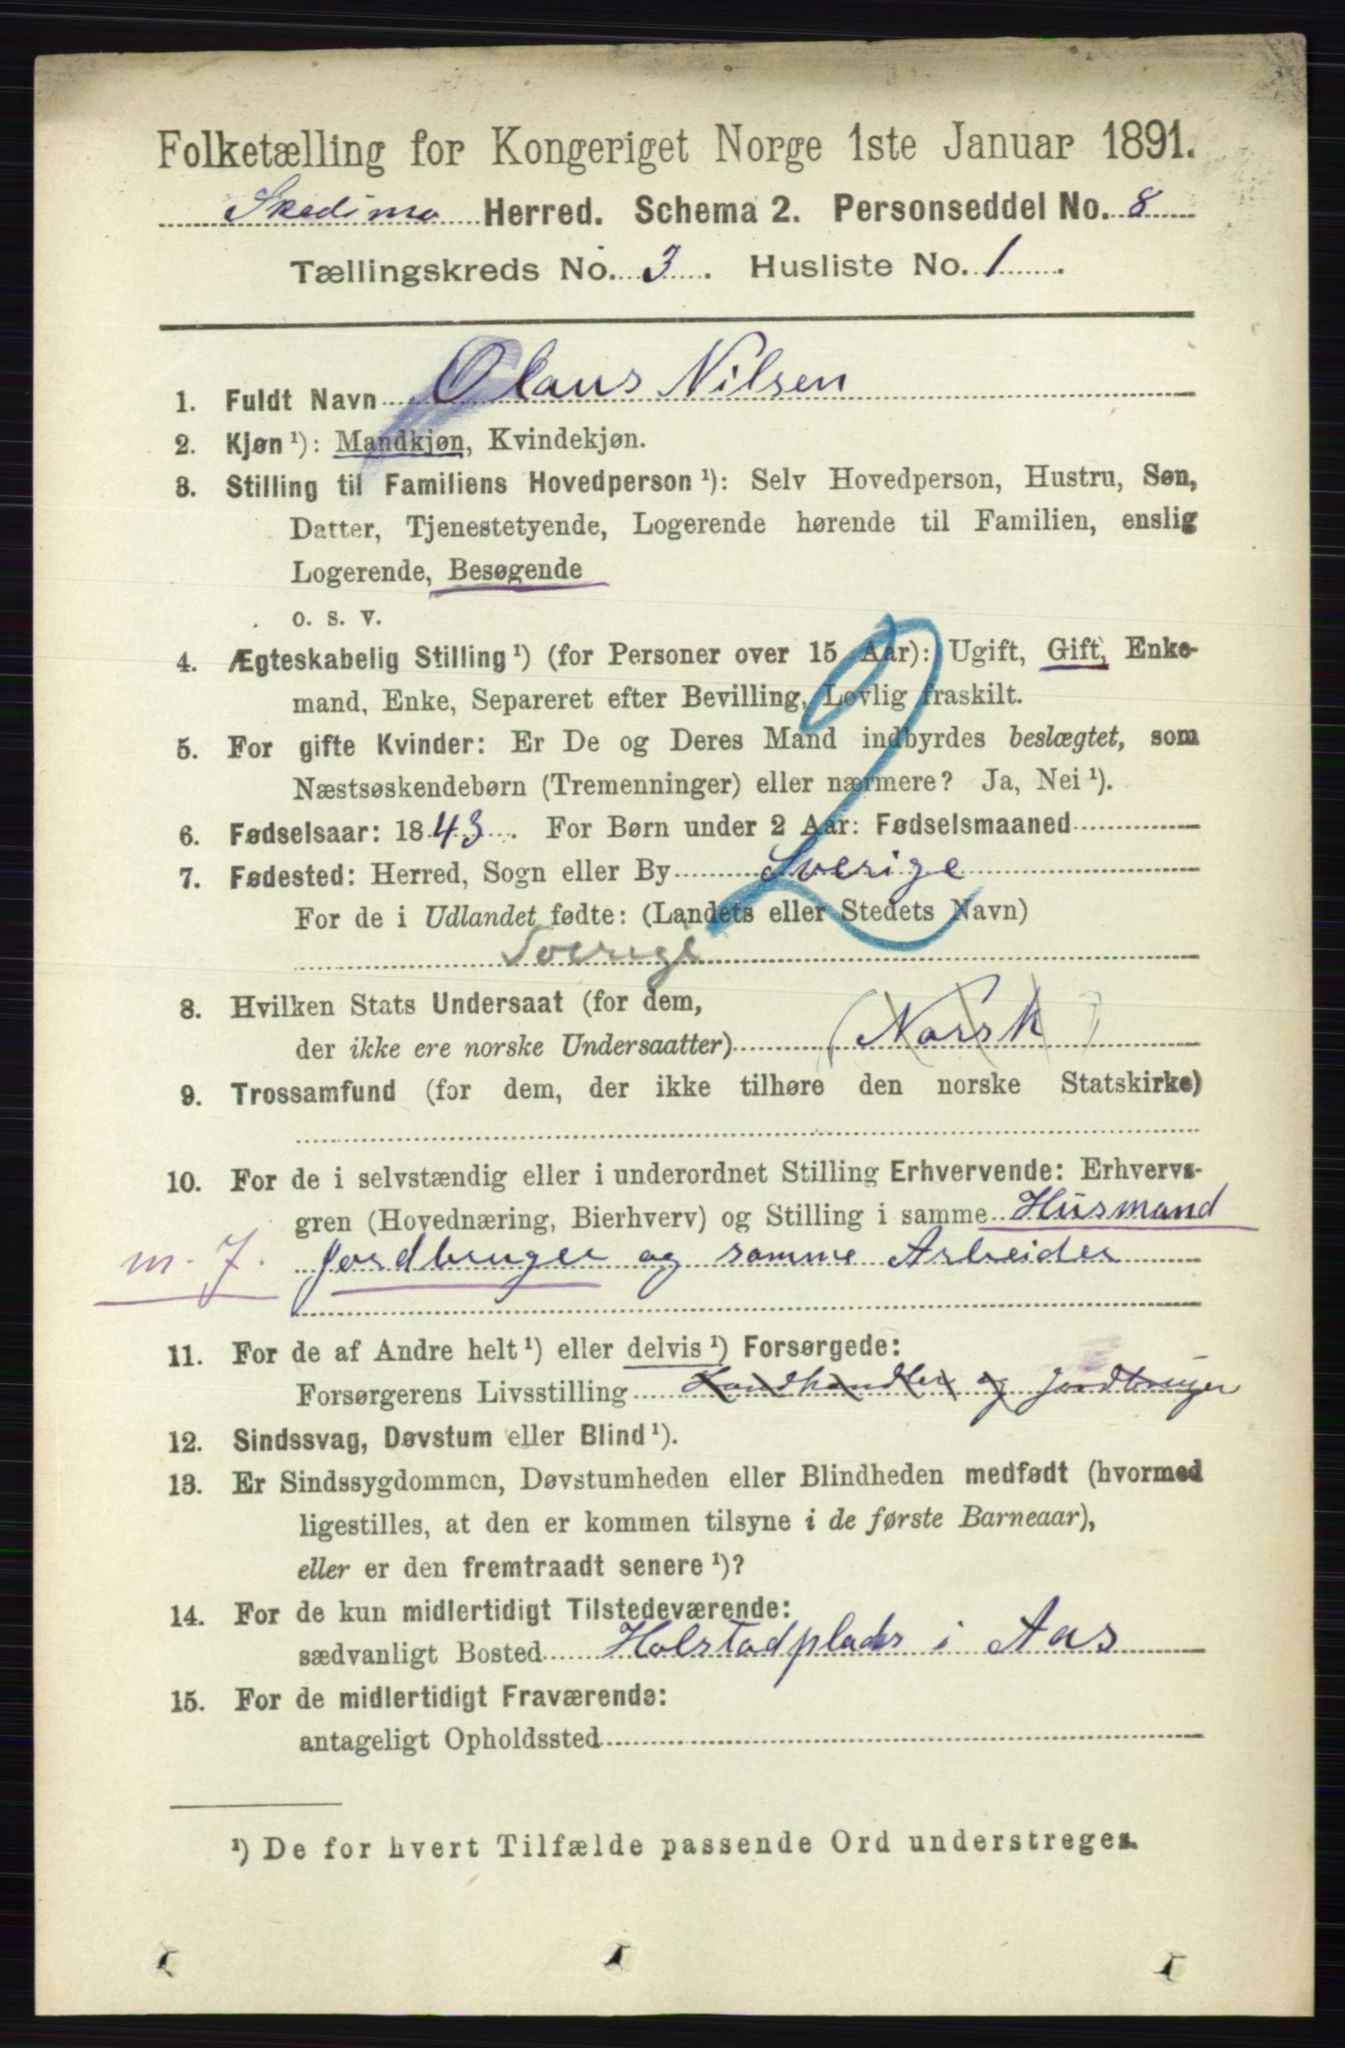 Folketælling for Kongeriget Norge 1ste Januar 1891.
Skedsmo Herred. Schema 2. Personseddel No. 8
Tællingskreds No. 3. Husliste No. 1.
1. Fuldt Navn Olaus Nilsen
2. Kjøn ¹): Mandkjøn, Kvindekjøn.
3. Stilling til Familiens Hovedperson ¹): Selv Hovedperson, Hustru, Søn,
Datter, Tjenestetyende, Logerende hørende til Familien, enslig
Logerende, Besøgende
o. s. v.
4. Ægteskabelig Stilling ¹) (for Personer over 15 Aar): Ugift, Gift, Enke-
mand, Enke, Separeret efter Bevilling, Lovlig fraskilt.
5. For gifte Kvinder: Er De og Deres Mand indbyrdes beslægtet, som
Næstsøskendebørn (Tremenninger) eller nærmere? Ja, Nei ¹).
6. Fødselsaar: 1843. For Børn under 2 Aar: Fødselsmaaned
7. Fødested: Herred, Sogn eller By Sverige
For de i Udlandet fødte: (Landets eller Stedets Navn)
Sverige
2
8. Hvilken Stats Undersaat (for dem,
der ikke ere norske Undersaatter) (Norsk)
9. Trossamfund (for dem, der ikke tilhøre den norske Statskirke)
10. For de i selvstændig eller i underordnet Stilling Erhvervende: Erhvervs-
gren (Hovednæring, Bierhverv) og Stilling i samme Husmand
m. J. Jordbruger og samme Arbeider
11. For de af Andre helt ¹) eller delvis ¹) Forsørgede:
Forsørgerens Livsstilling Landhandler og Jordbruger
12. Sindssvag, Døvstum eller Blind ¹).
13. Er Sindssygdommen, Døvstumheden eller Blindheden medfødt (hvormed
ligestilles, at den er kommen tilsyne i de første Barneaar),
eller er den fremtraadt senere ¹)?
14. For de kun midlertidigt Tilstedeværende:
sædvanligt Bosted Holstadplads i Aas
15. For de midlertidigt Fraværende:
antageligt Opholdssted
¹) De for hvert Tilfælde passende Ord understreges.